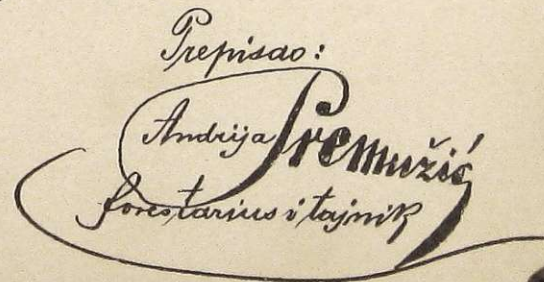 Prepisao:
Andrija Premužić
forestarius i tajnik